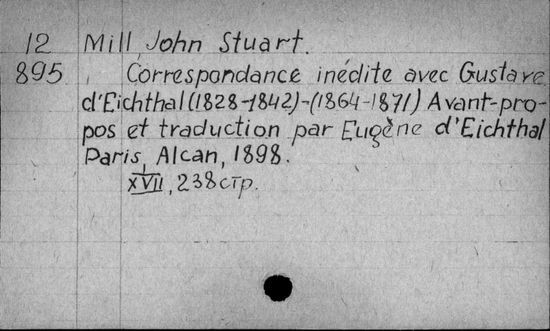 12 Mill, John Stuart.
895 Correspondance inédite avec Gustave
d'Eichthal (1828-1842)-(1864-1871) Avant-pro-
pos et traduction par Eugène d'Eichthal
Paris, Alcan, 1898.
XVII, 238 стр.